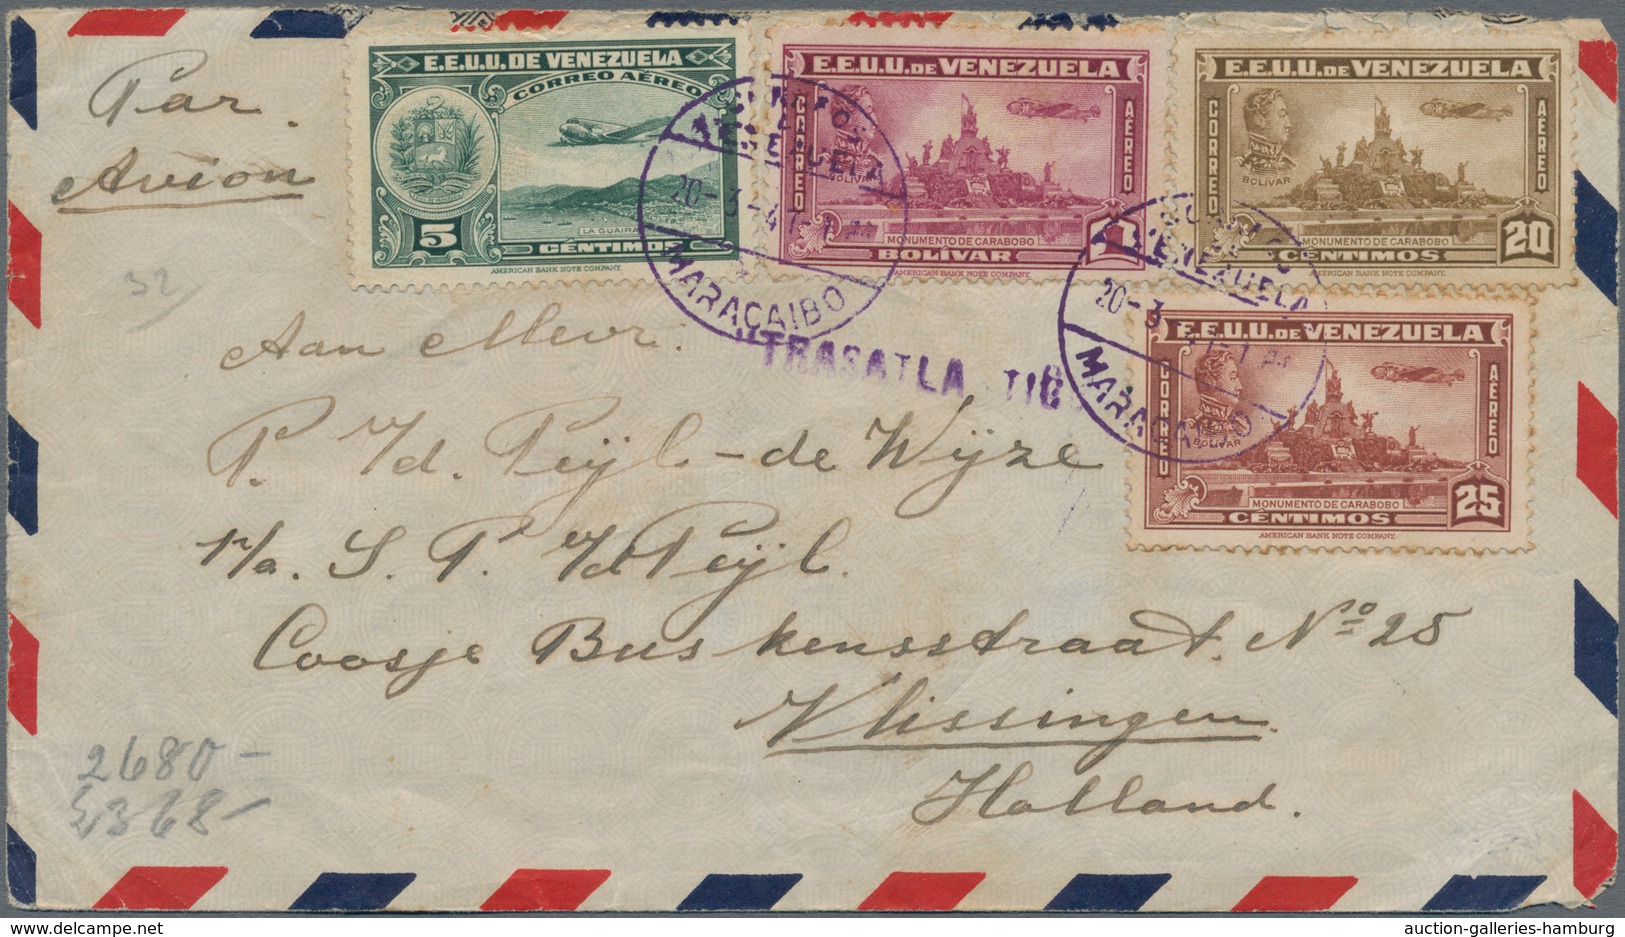 Par
Avion
E.E.U.U. DE VENEZUELA
CORREO AÉREO
LA GUAIRA
5 CÉNTIMOS
AMERICAN BANK NOTE COMPANY.
E.E.U.U. DE VENEZUELA
CORREO AEREO
BOLÍVAR
MONUMENTO DE CARABOBO
BOLÍVAR 1
AMERICAN BANK NOTE COMPANY.
E.E.U.U. DE VENEZUELA
CORREO AEREO
BOLÍVAR
MONUMENTO DE CARABOBO
CÉNTIMOS 20
AMERICAN BANK NOTE COMPANY.
VENEZUELA
20-3-47
MARACAIBO
VENEZUELA
20-3
MARACAIBO
TRASATLA TIC
E.E.U.U. DE VENEZUELA
CORREO AEREO
BOLÍVAR
MONUMENTO DE CARABOBO
CÉNTIMOS 25
AMERICAN BANK NOTE COMPANY.
32
Aan Mevr:
P. v/d. Peijl-de Wijze
p/a. S. P. v/d Peijl.
Coosje Buskensstraat. No 25
Vlissingen.
Holland.
2680-
£368-
auction-galleries-hamburg